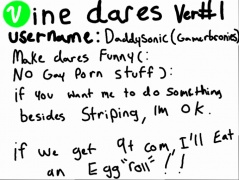 Vine dares Ver#1
username: DaddySonic (Gamerbronies)
Make dares Funny(:
No Gay Porn stuff):
if you want me to do something
besides Striping, I'm O.K.
if we get 9+ com, I'll Eat
an Egg "roll" !!